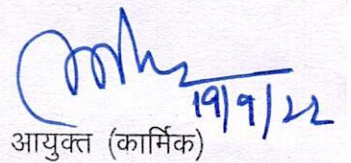 19/9/22
आयुक्त (कार्मिक)